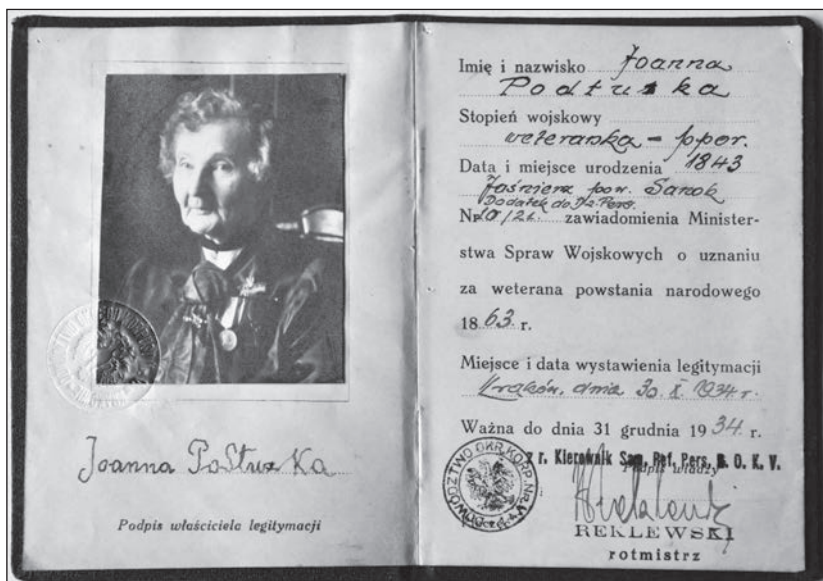 Joanna Postuszka
Podpis właściciela legitymacji
Imię i nazwisko Joanna
Podtuska
Stopień wojskowy
weteranka – ppor.
Data i miejsce urodzenia 1843
pow. Sanok
Dodatek do Dz. Pers.
Nr 10/21. zawiadomienia Minister-
stwa Spraw Wojskowych o uznaniu
za weterana powstania narodowego
1863. r.
Miejsce i data wystawienia legitymacji
Kraków, dnia 30. X. 1934 r.
Ważna do dnia 31 grudnia 1934. r.
z r. Kierownik Sam. Ref. Pers. D. O. K. V.
Podpis władzy
REKLEWSKI
rotmistrz
DOWÓDZTWO OKR. KORP. Nr. V